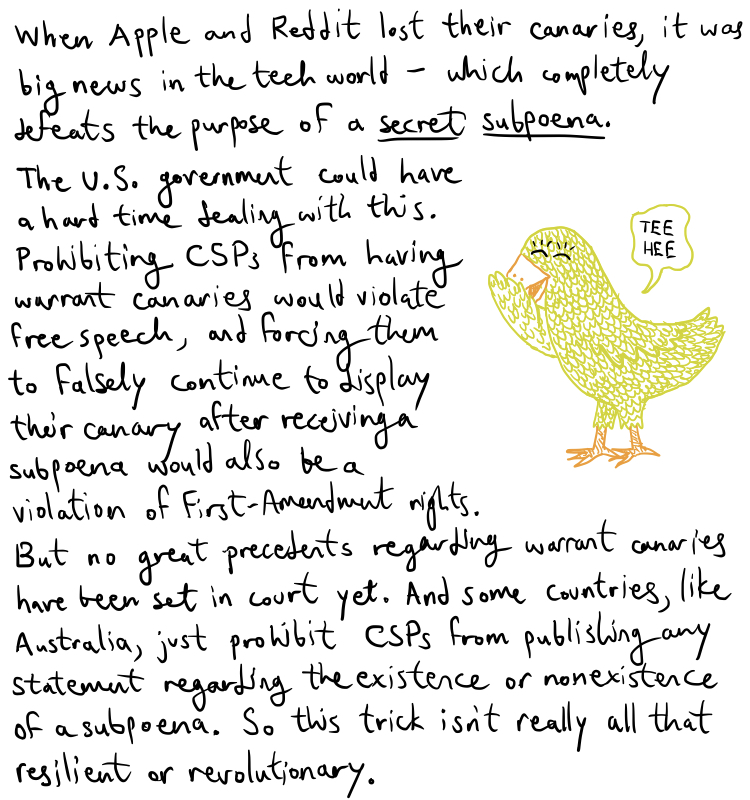 When Apple and Reddit lost their canaries, it was
big news in the tech world – which completely
defeats the purpose of a secret subpoena.
The U.S. government could have
a hard time dealing with this.
Prohibiting CSPs from having
warrant canaries would violate
free speech, and forcing them
to falsely continue to display
their canary after receiving a
subpoena would also be a
violation of First-Amendment rights.
TEE
HEE
But no great precedents regarding warrant canaries
have been set in court yet. And some countries, like
Australia, just prohibit CSPs from publishing any
statement regarding the existence or nonexistence
of a subpoena. So this trick isn't really all that
resilient or revolutionary.